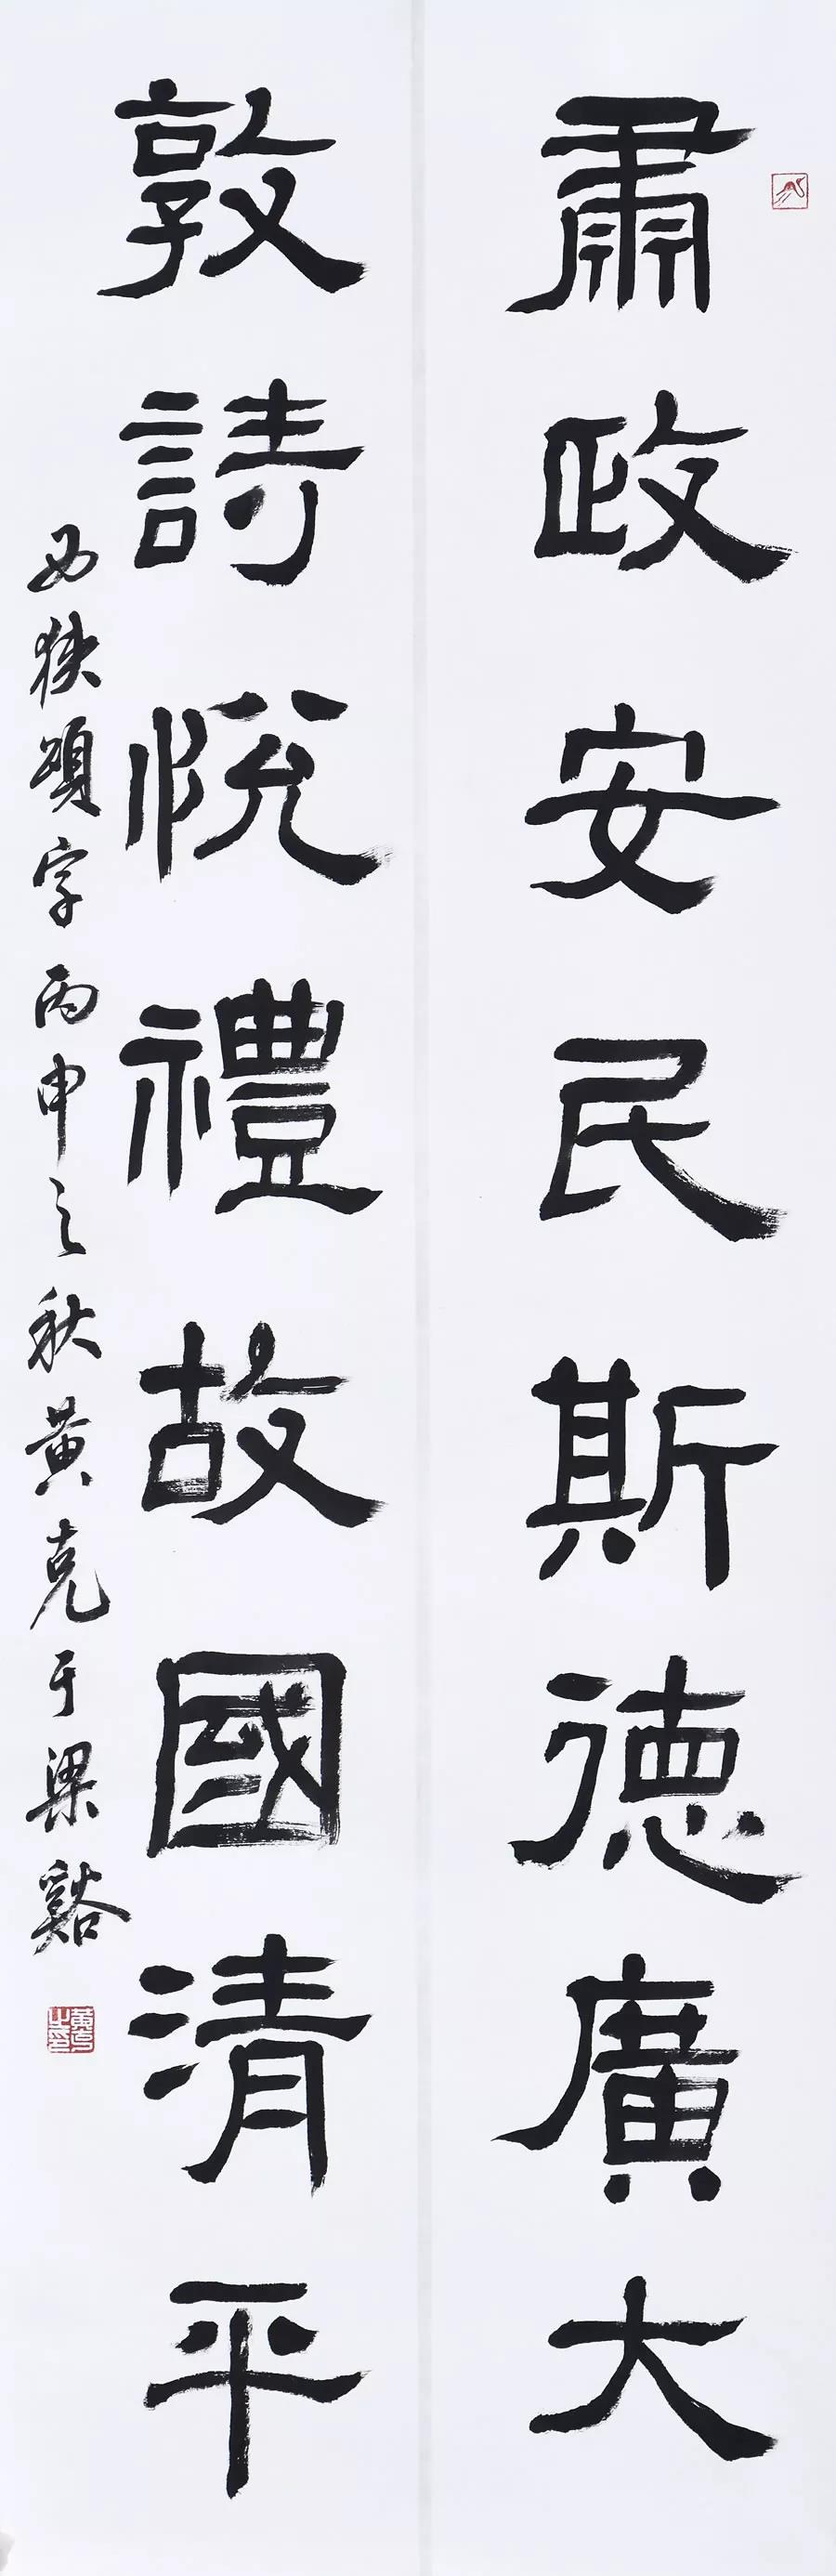 肅政安民斯德廣大
敦詩悅禮故國清平
西狹頌字丙申之秋黃克于梁谿